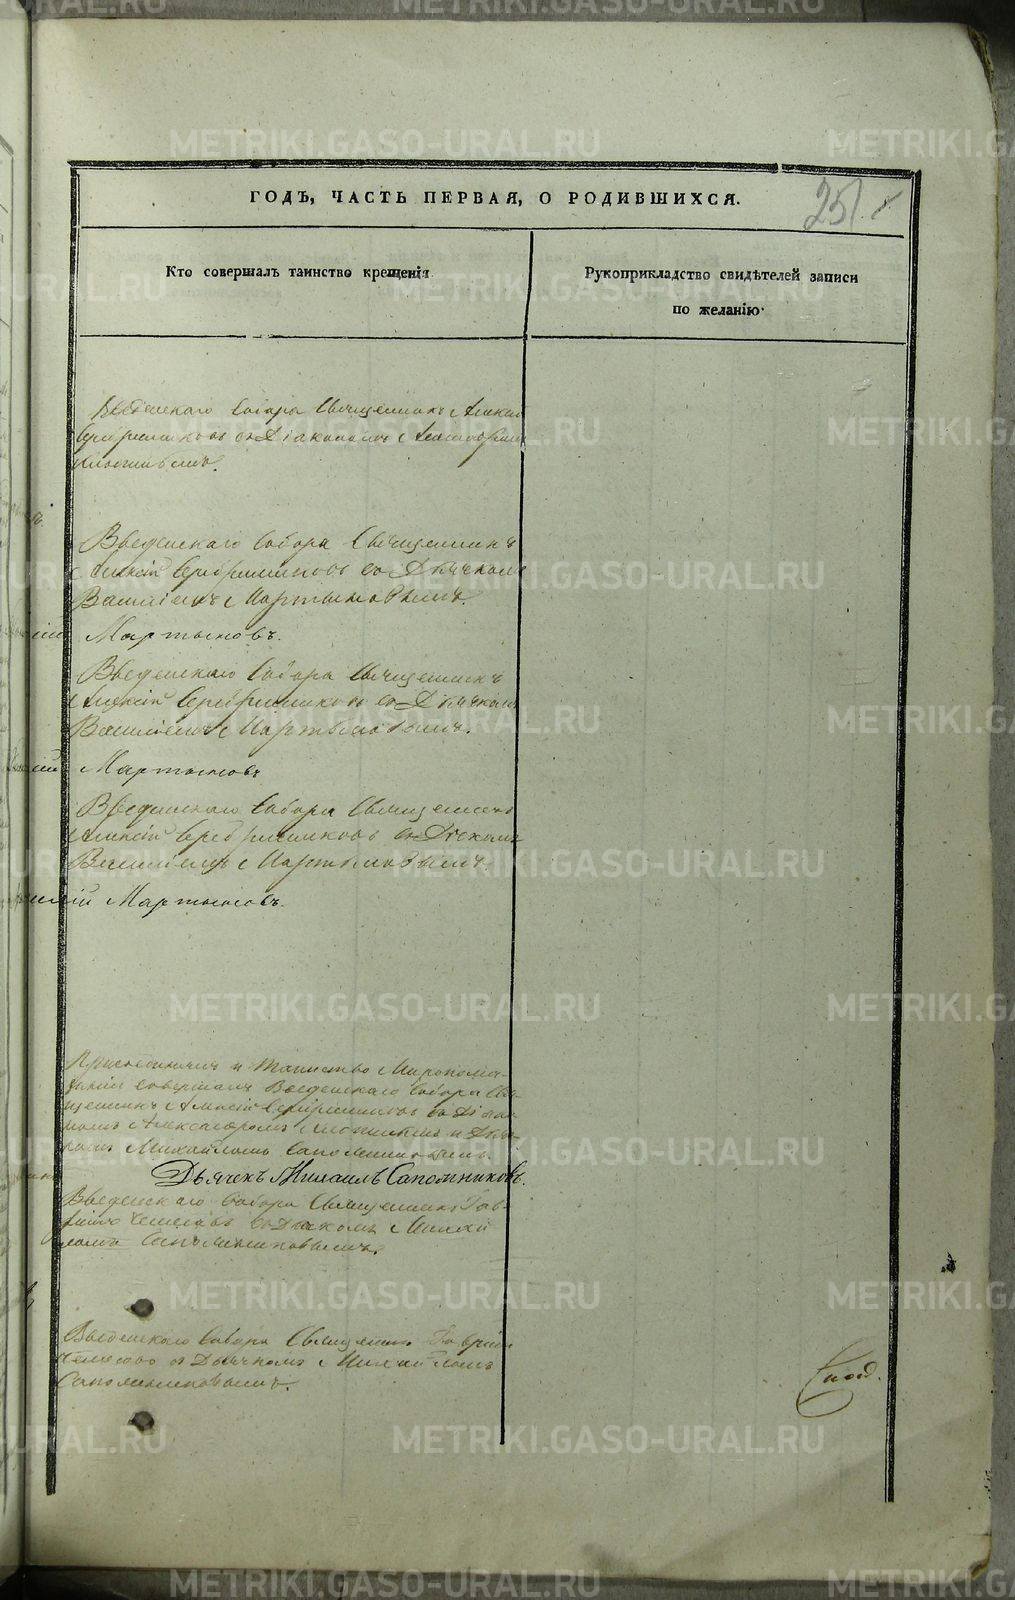 ГОДЪ, ЧАСТЬ ПЕРВАЯ, О РОДИВШИХСЯ.
251
Кто совершалъ таинство крещенія
Рукоприкладство свидѣтелей записи
по желанію
Введенскаго Собора Священникъ Алексій
Серебрянниковъ съ Діакономъ Александромъ
Введенскаго Собора Священникъ
Алексій Серебрянниковъ съ Дьячкомъ
Василіемъ Мартыновымъ.
Мартыновъ.
Введенскаго Собора Священникъ
Алексій Серебрянниковъ съ Дьячкомъ
Василіемъ Мартыновымъ.
Мартыновъ
Введенскаго Собора Священникъ
Алексій Серебрянниковъ съ Дьячкомъ
Василіемъ Мартыновымъ.
Мартыновъ.
и Таинство Миропома-
занія совершалъ Введенскаго Собора Свя-
щенникъ Алексій Серебрянниковъ съ Діако-
номъ Александромъ и Дьяч-
комъ Михайломъ Сапожниковымъ
Дьячекъ Михаилъ Сапожниковъ.
Введенскаго Собора Священникъ Гав-
съ Дьячкомъ Михай
ломъ Сапожниковымъ.
Введенскаго Собора Священникъ Гавріилъ
съ Дьячкомъ Михайломъ
Сапожниковымъ.
METRIKI.GASO-URAL.RU